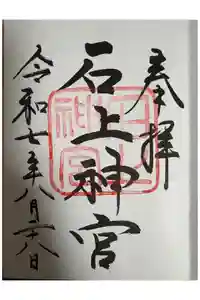 奉拝
石上神宮
令和七年八月二十八日